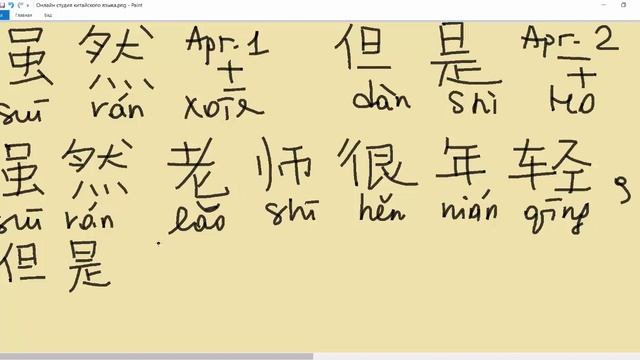 Онлайн студия китайского языка.png - Paint
Главная Вид
虽然 Арг. 1 但是 Арг. 2
suī rán хотя dàn shì но
虽然老师很年轻，
suī rán lǎo shī hěn nián qīng
但是